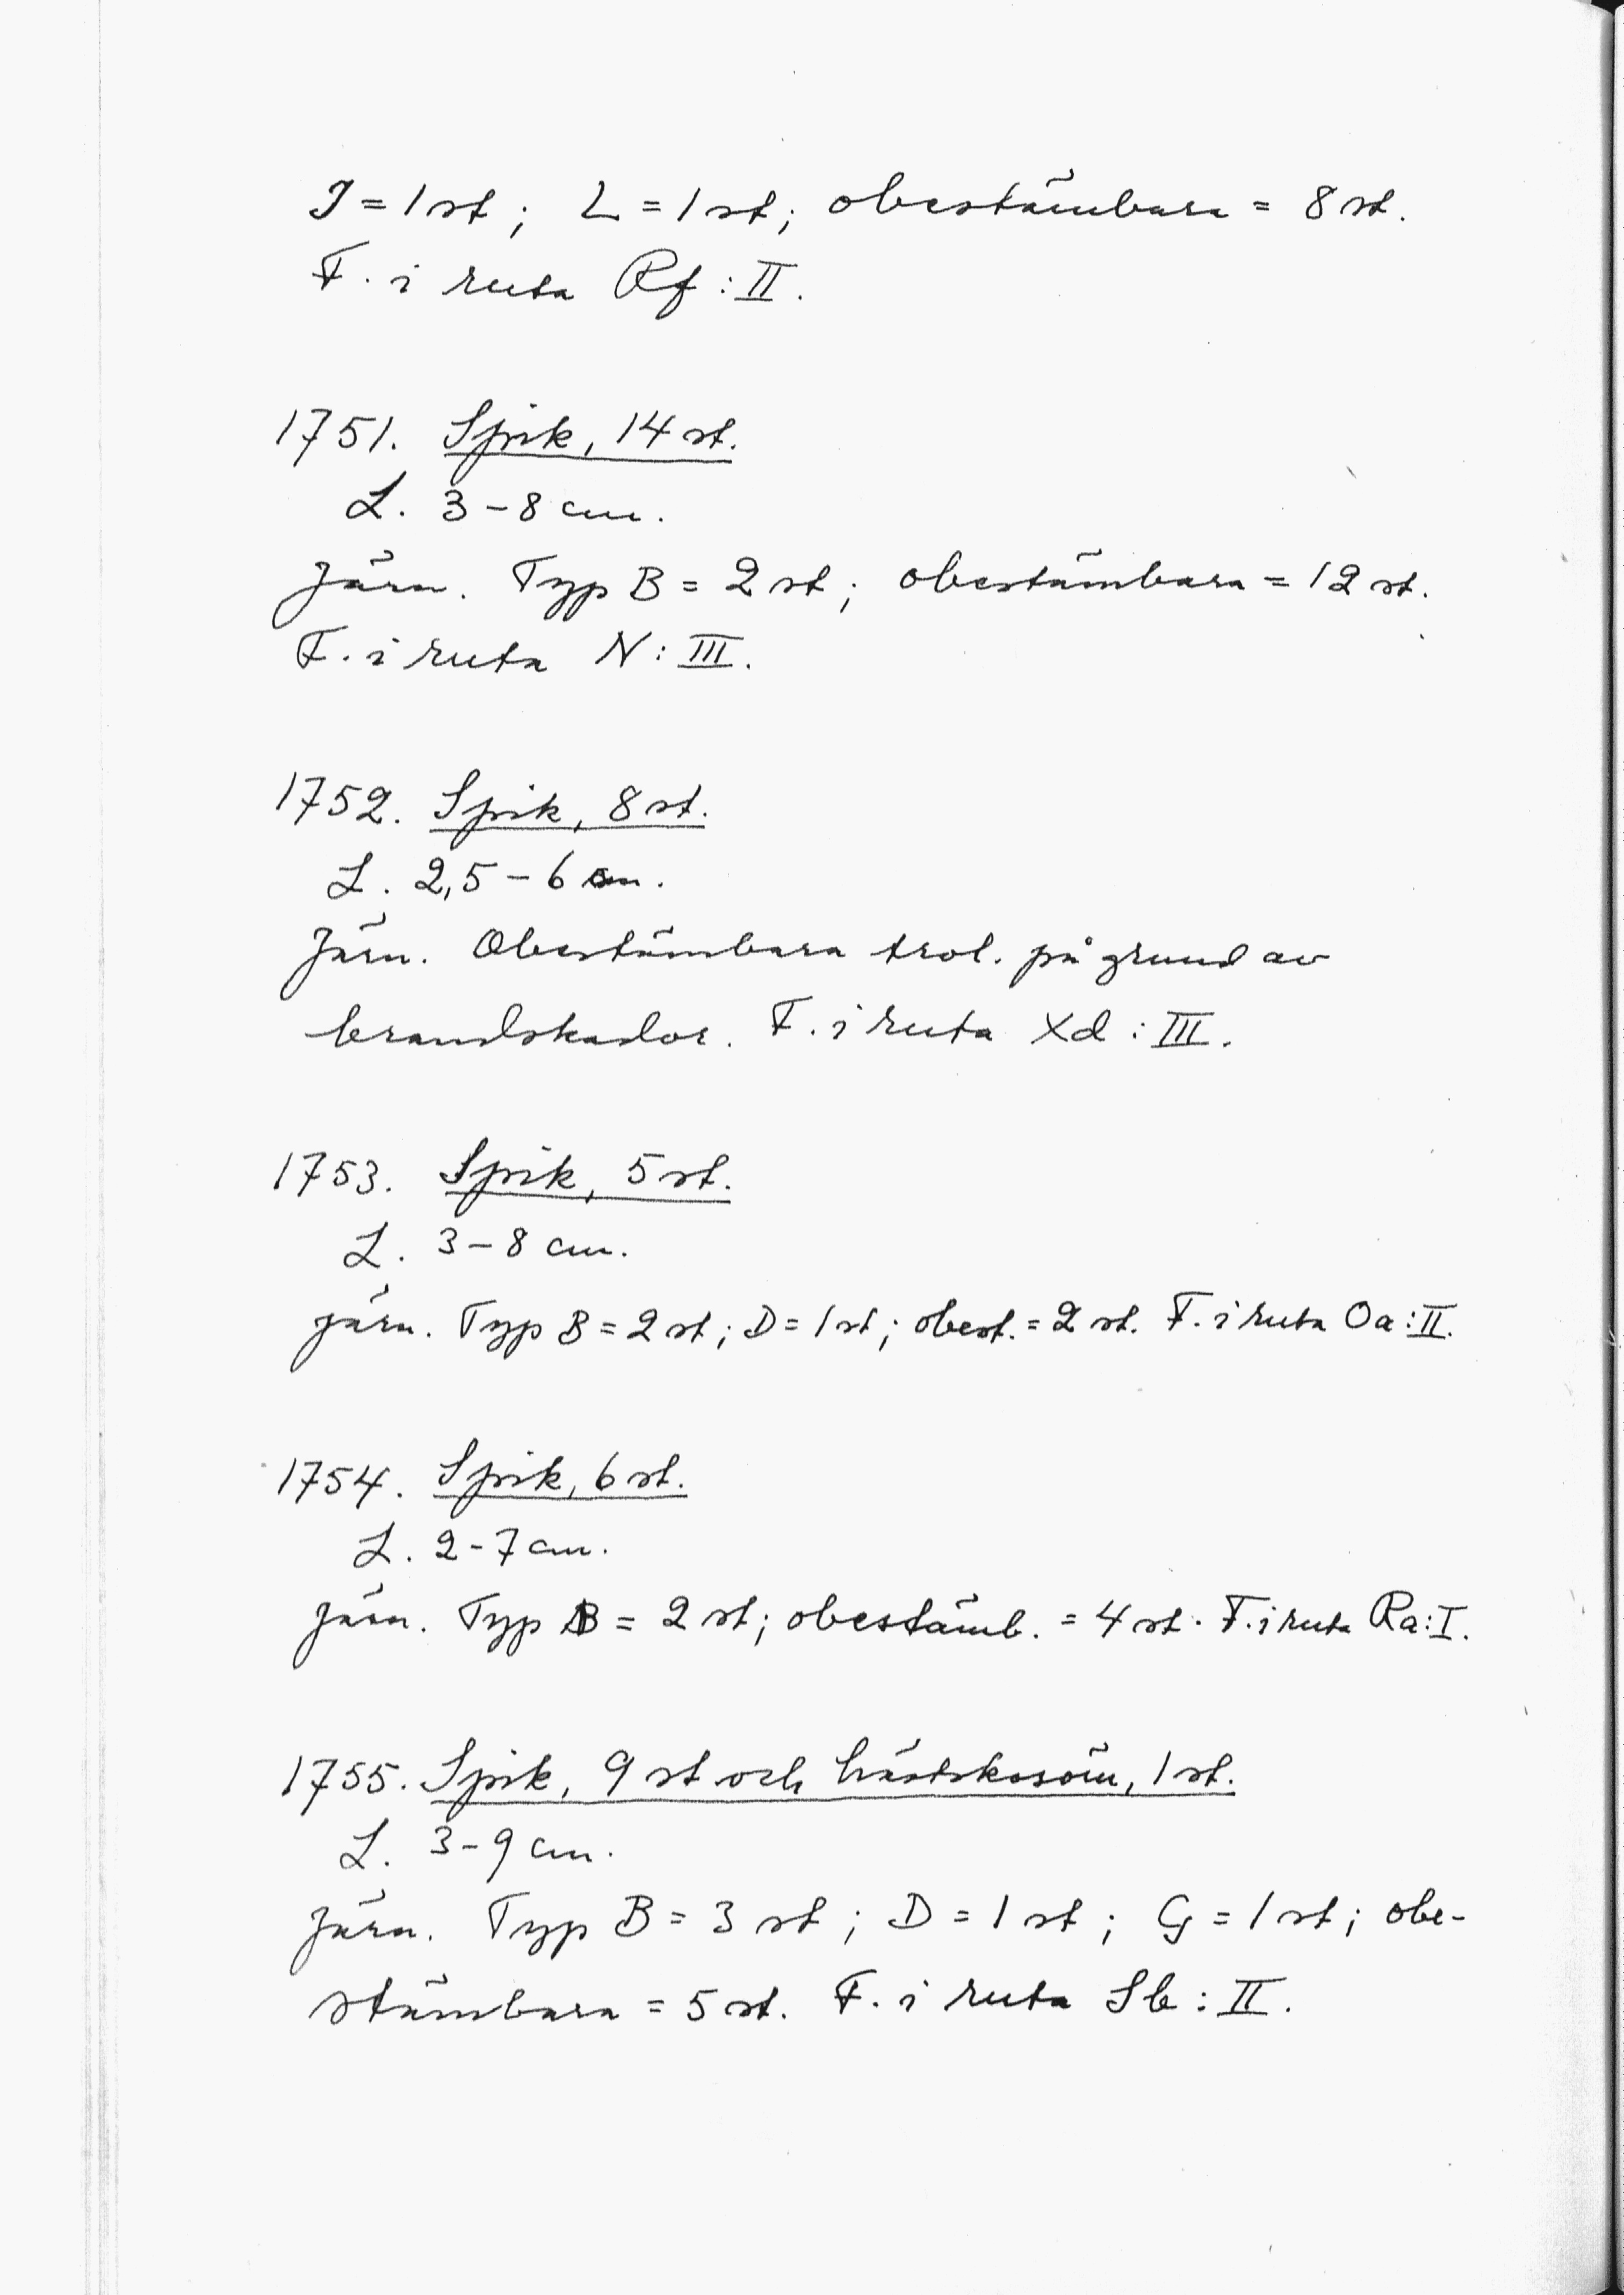 J = 1 st; L = 1 st; obestämbara = 8 st.
F. i ruta Rf : II.
1751. Spik, 14 st.
L. 3-8 cm.
Järn. Typ B = 2 st; obestämbara = 12 st.
F. i ruta N : III.
1752. Spik, 8 st.
L. 2,5-6 cm.
Järn. Obestämbara trol. på grund av
brandskador. F. i ruta Xd : III.
1753. Spik, 5 st.
L. 3-8 cm.
Järn. Typ B = 2 st; D = 1 st; obest. = 2 st. F. i ruta Oa : II.
1754. Spik, 6 st.
L. 2-7 cm.
Järn. Typ B = 2 st; obestämb. = 4 st. F. i ruta Ra : I.
1755. Spik, 9 st och hästskosöm, 1 st.
L. 3-9 cm.
Järn. Typ B = 3 st; D = 1 st; G = 1 st; obe-
stämbara = 5 st. F. i ruta Sb : II.